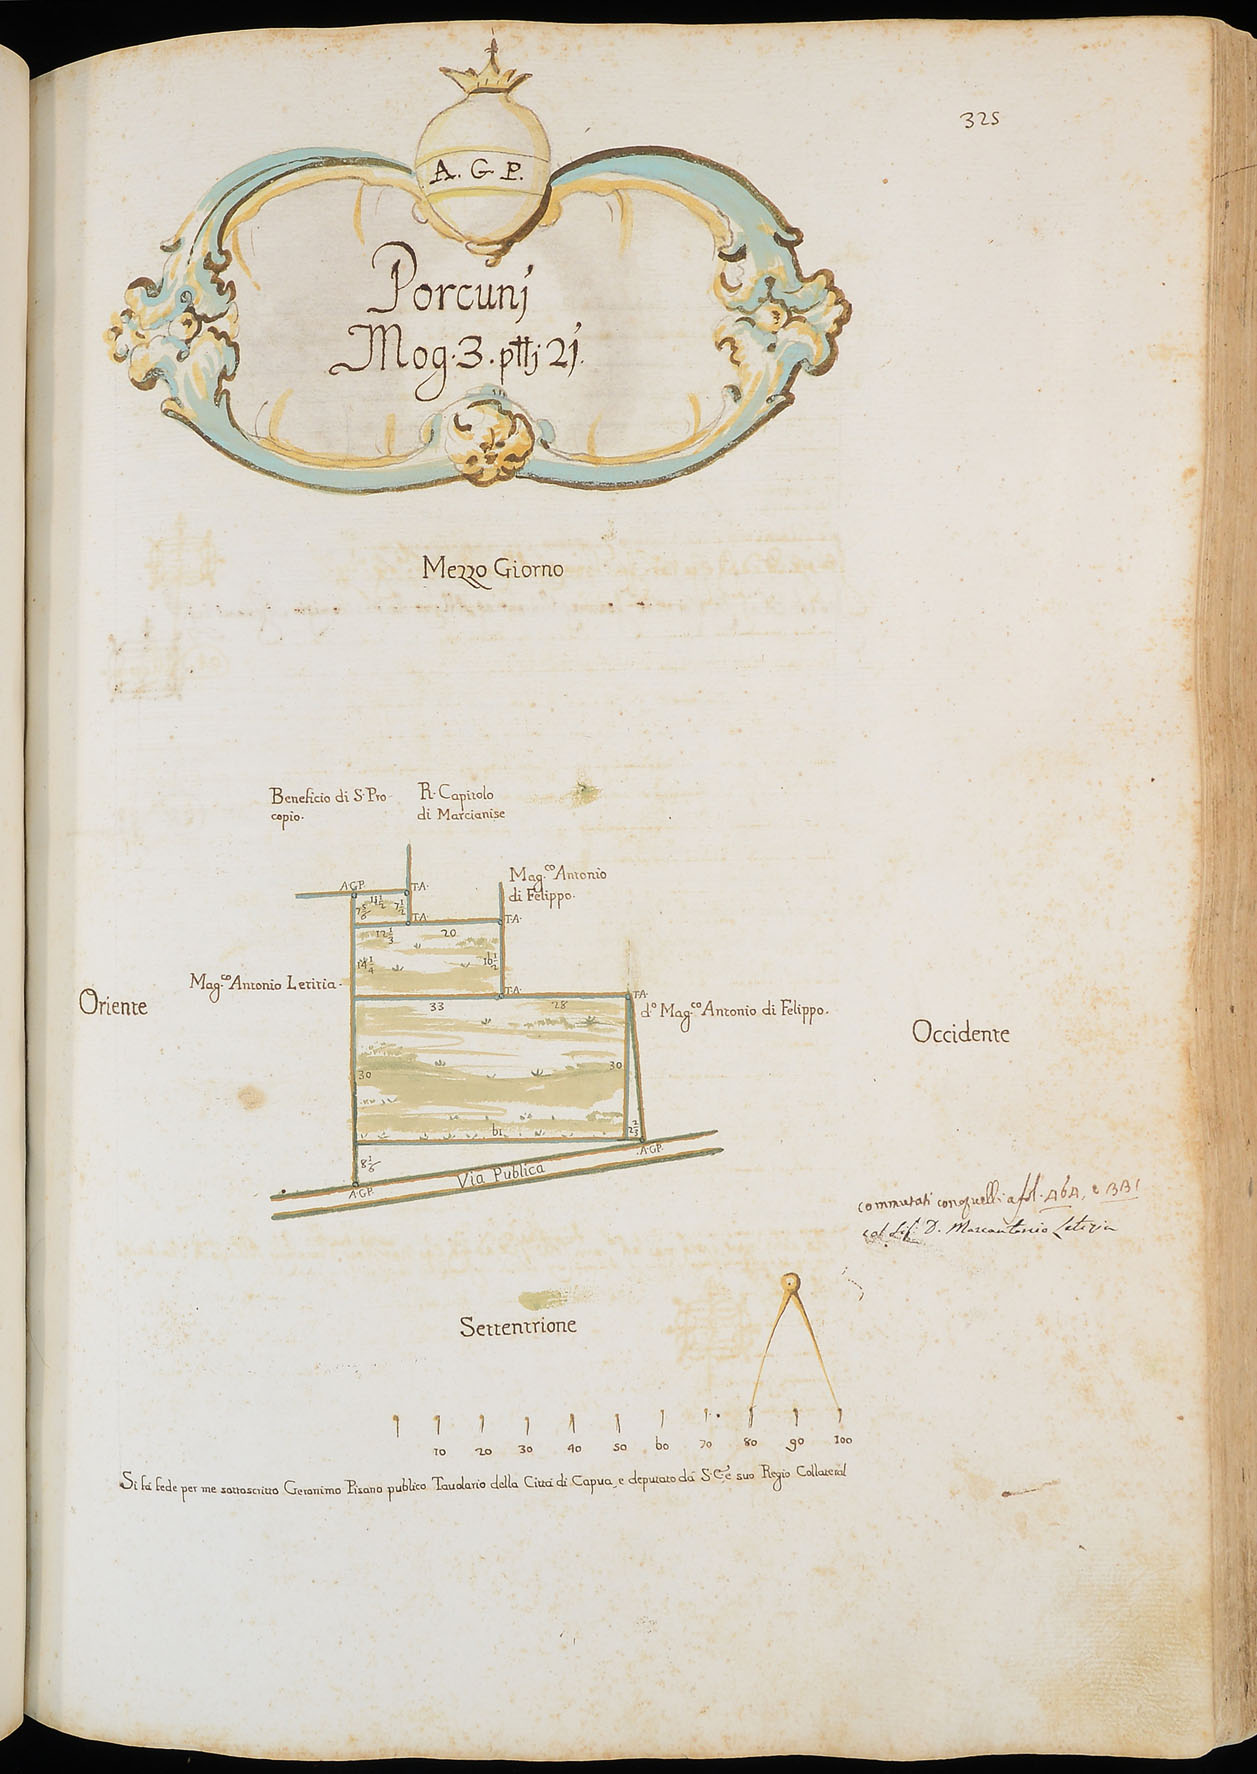 325
A. G. P.
Porcunj
Mog. 3. pttj 2j.
Mezzo Giorno
Beneficio di S. Pro
copio.
R. Capitolo
di Marcianise
Mag.co Antonio
di Felippo.
A.G.P.
T.A.
11 1/2
7 5/6
7 1/2
T.A.
T.A.
12 1/3
20
14 1/4
16 1/2
Mag.co Antonio Letitia.
T.A.
T.A.
Oriente
33
28
d.o Mag.co Antonio di Felippo.
Occidente
30
30
61
2 2/3
A.G.P.
8 1/6
Via Publica
A.G.P.
commutati con quelli a fol. 464, e 331
col Sig. D. Marcantonio Letizia
Settentrione
10 20 30 40 50 60 70 80 90 100
Si fà fede per me sottoscritto Geronimo Pisano publico Tavolario della Città di Capua, e deputato dà S. C. è suo Regio Collateral